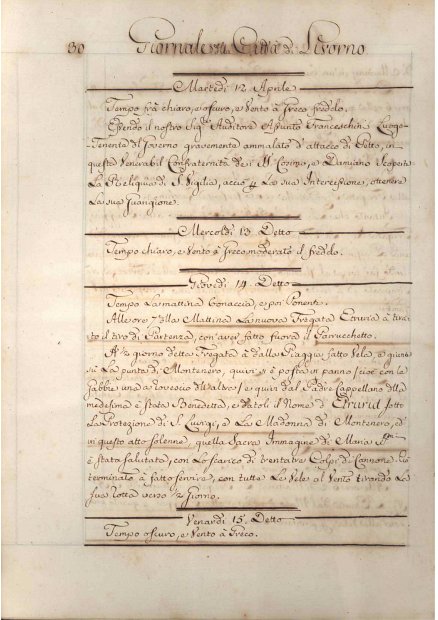 80 Giornale della Città di Livorno
Martedì 12 Aprile
Tempo frà chiaro, e oscuro, e Vento à Greco freddo.
Essendo il nostro Sigre Auditore Assunto Franceschini Luogo-
Tenente del Governo gravemente ammalato d'attacco di Petto, in
questa Venerabil Confraternità de SS. Cosimo, e Damiano Scoperta
La Reliquia di S. Vigilia, acciò La sua Intercessione, ottenere
La sua Guarigione.
Mercoldì 13 Detto
Tempo chiaro, e Vento à Greco moderato il freddo.
Giovedì 14 Detto
Tempo La mattina Bonaccia, e poi Ponente.
All'ore 7 della Mattina La nuova Fregata Etruria à tira-
to il tiro di Partenza, con aver fatto fuora il Parrucchetto.
A ½ giorno detta Fregata à dalla Piaggia fatto Vela, e giunta
sù La punta di Montenero, quivi si è posta in panno, cioè con le
gabbie una a rovescio dell'altra, e quivi dal Padre Cappellano della
medesima è stata Benedetta, e datoli il Nome d'Etruria sotto
La Protezione di S. Luigi, e La Madonna di Montenero, ed
in questo atto solenne, quella Sacra Immagine di Maria SSma
è stata salutata, con Lo scarico di trentatre Colpi di Cannone.
terminato à fatto servire, con tutte Le Vele al Vento tirando La
sua rotta verso
Venardì 15 Detto
Tempo oscuro, e Vento à Greco.